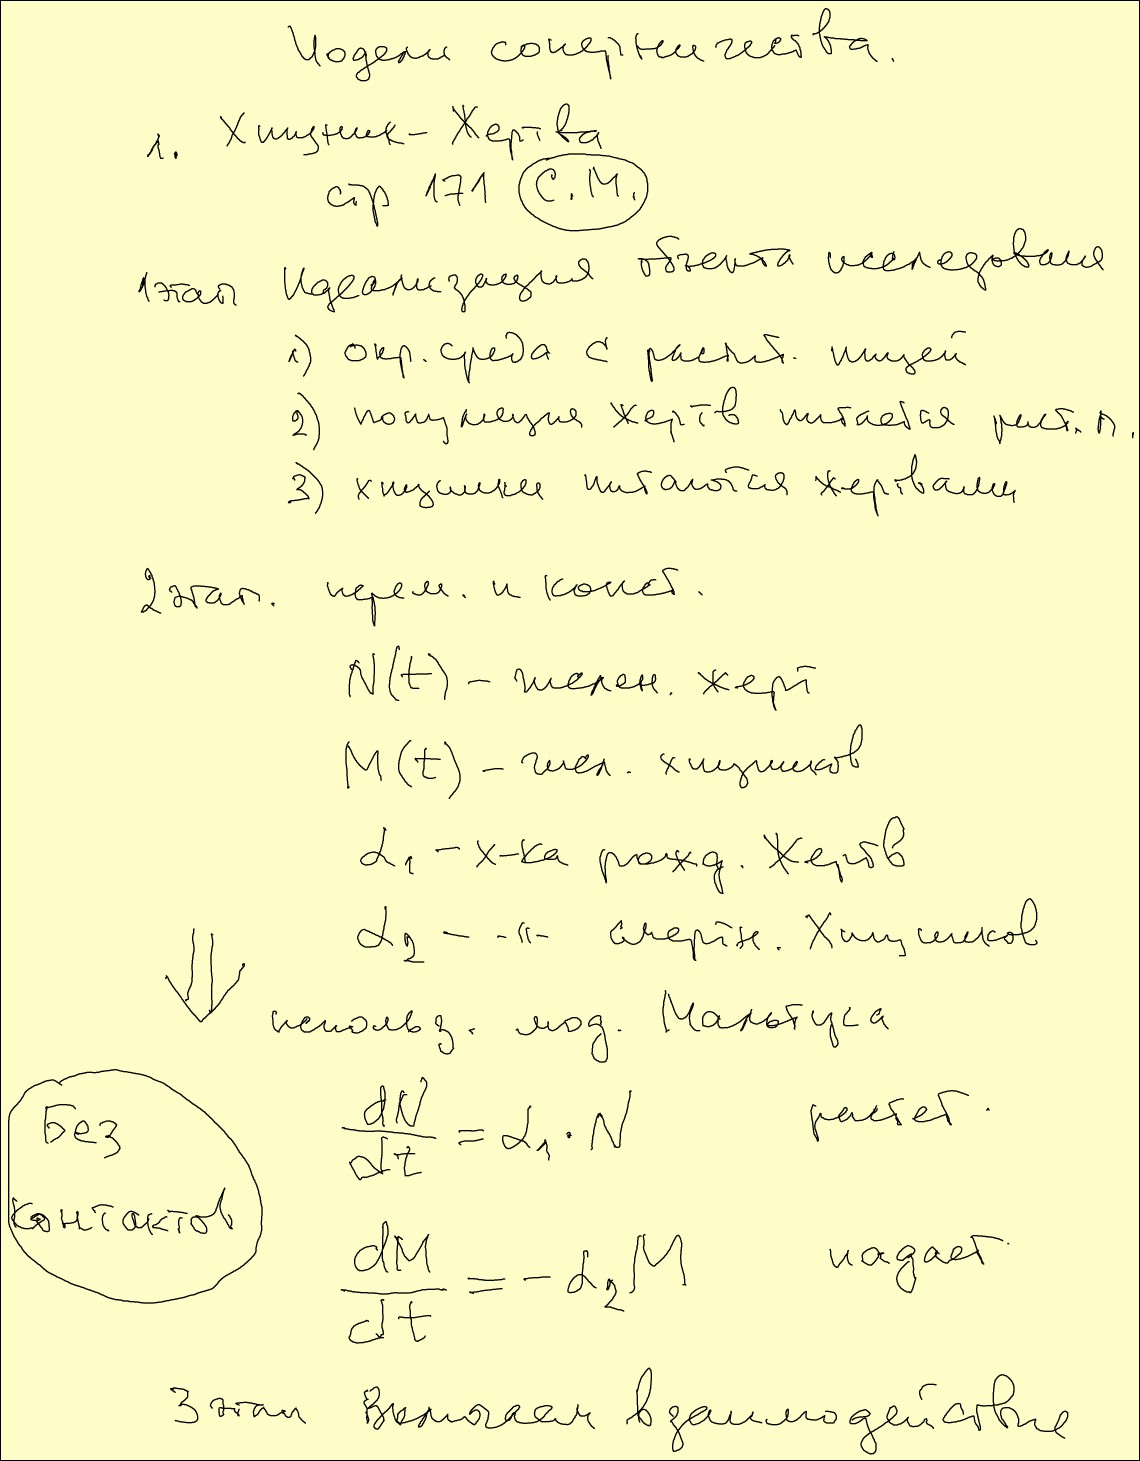 Модели соперничества.
1. Хищник - Жертва
стр 171 С.М.
1 этап Идеализация объекта исследования
1) окр. среда с растит. пищей
2) популяция жертв питается раст. п.
3) хищники питаются жертвами
2 этап. перем. и конст.
N(t) - числен. жерт
M(t) - числ. хищников
α₁ - х-ка рожд. Жертв
α₂ - -"- смертн. Хищников
⇓
использ. мод. Мальтуса
Без контактов
dN/dt = α₁ · N растет.
dM/dt = - α₂ M падает.
3 этап Включаем взаимодействие